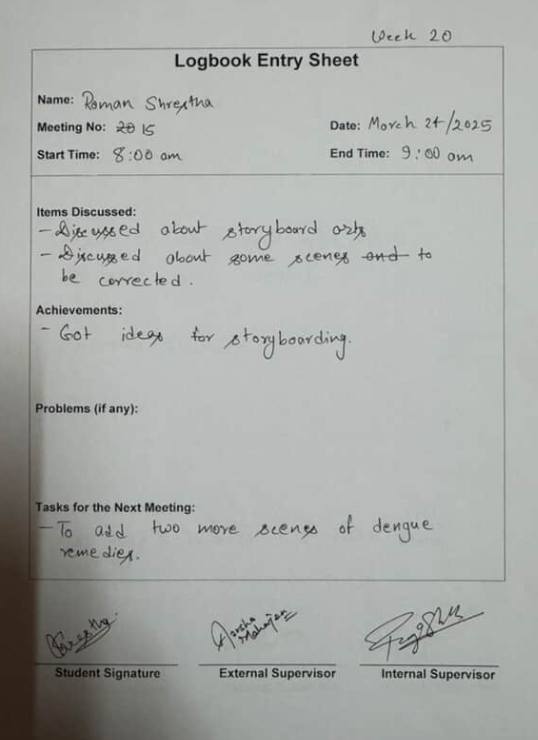 Week 20
Logbook Entry Sheet
Name: Roman Shrestha
Meeting No: 20 15
Date: March 24/2025
Start Time: 8:00 am
End Time: 9:00 am
Items Discussed:
- Discussed about storyboard arts
- Discussed about some scenes and to
be corrected.
Achievements:
- Got ideas for storyboarding.
Problems (if any):
Tasks for the Next Meeting:
- To add two more scenes of dengue
remedies.
Shrestha
Aarsha
Maharjan
Student Signature
External Supervisor
Internal Supervisor